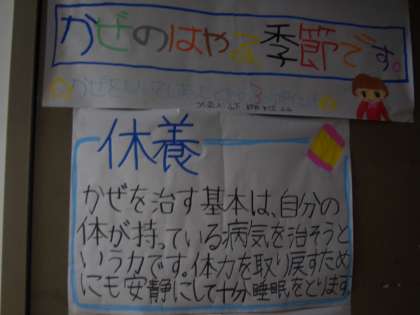 かぜのはやる季節です。
休養
かぜを治す基本は、自分の
体が持っている病気を治そうと
いう力です。体力を取り戻すため
にも安静にして十分睡眠をとります